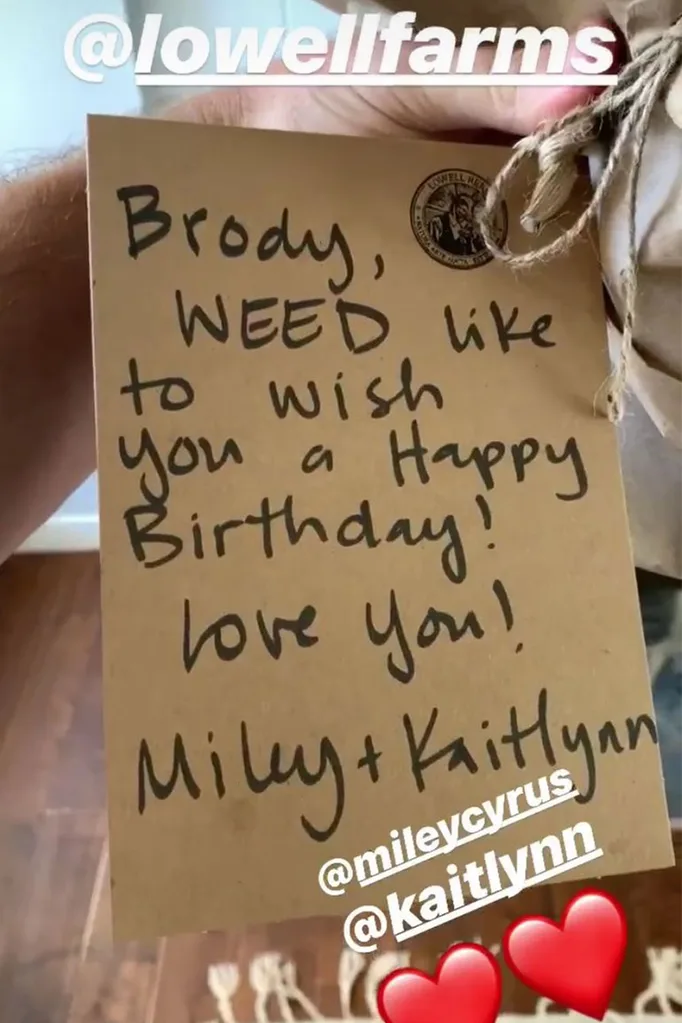 @lowellfarms
LOWELL
Brody,
WEED like
to wish
you a Happy
Birthday!
love you!
Miley + Kaitlynn
@mileycyrus
@kaitlynn